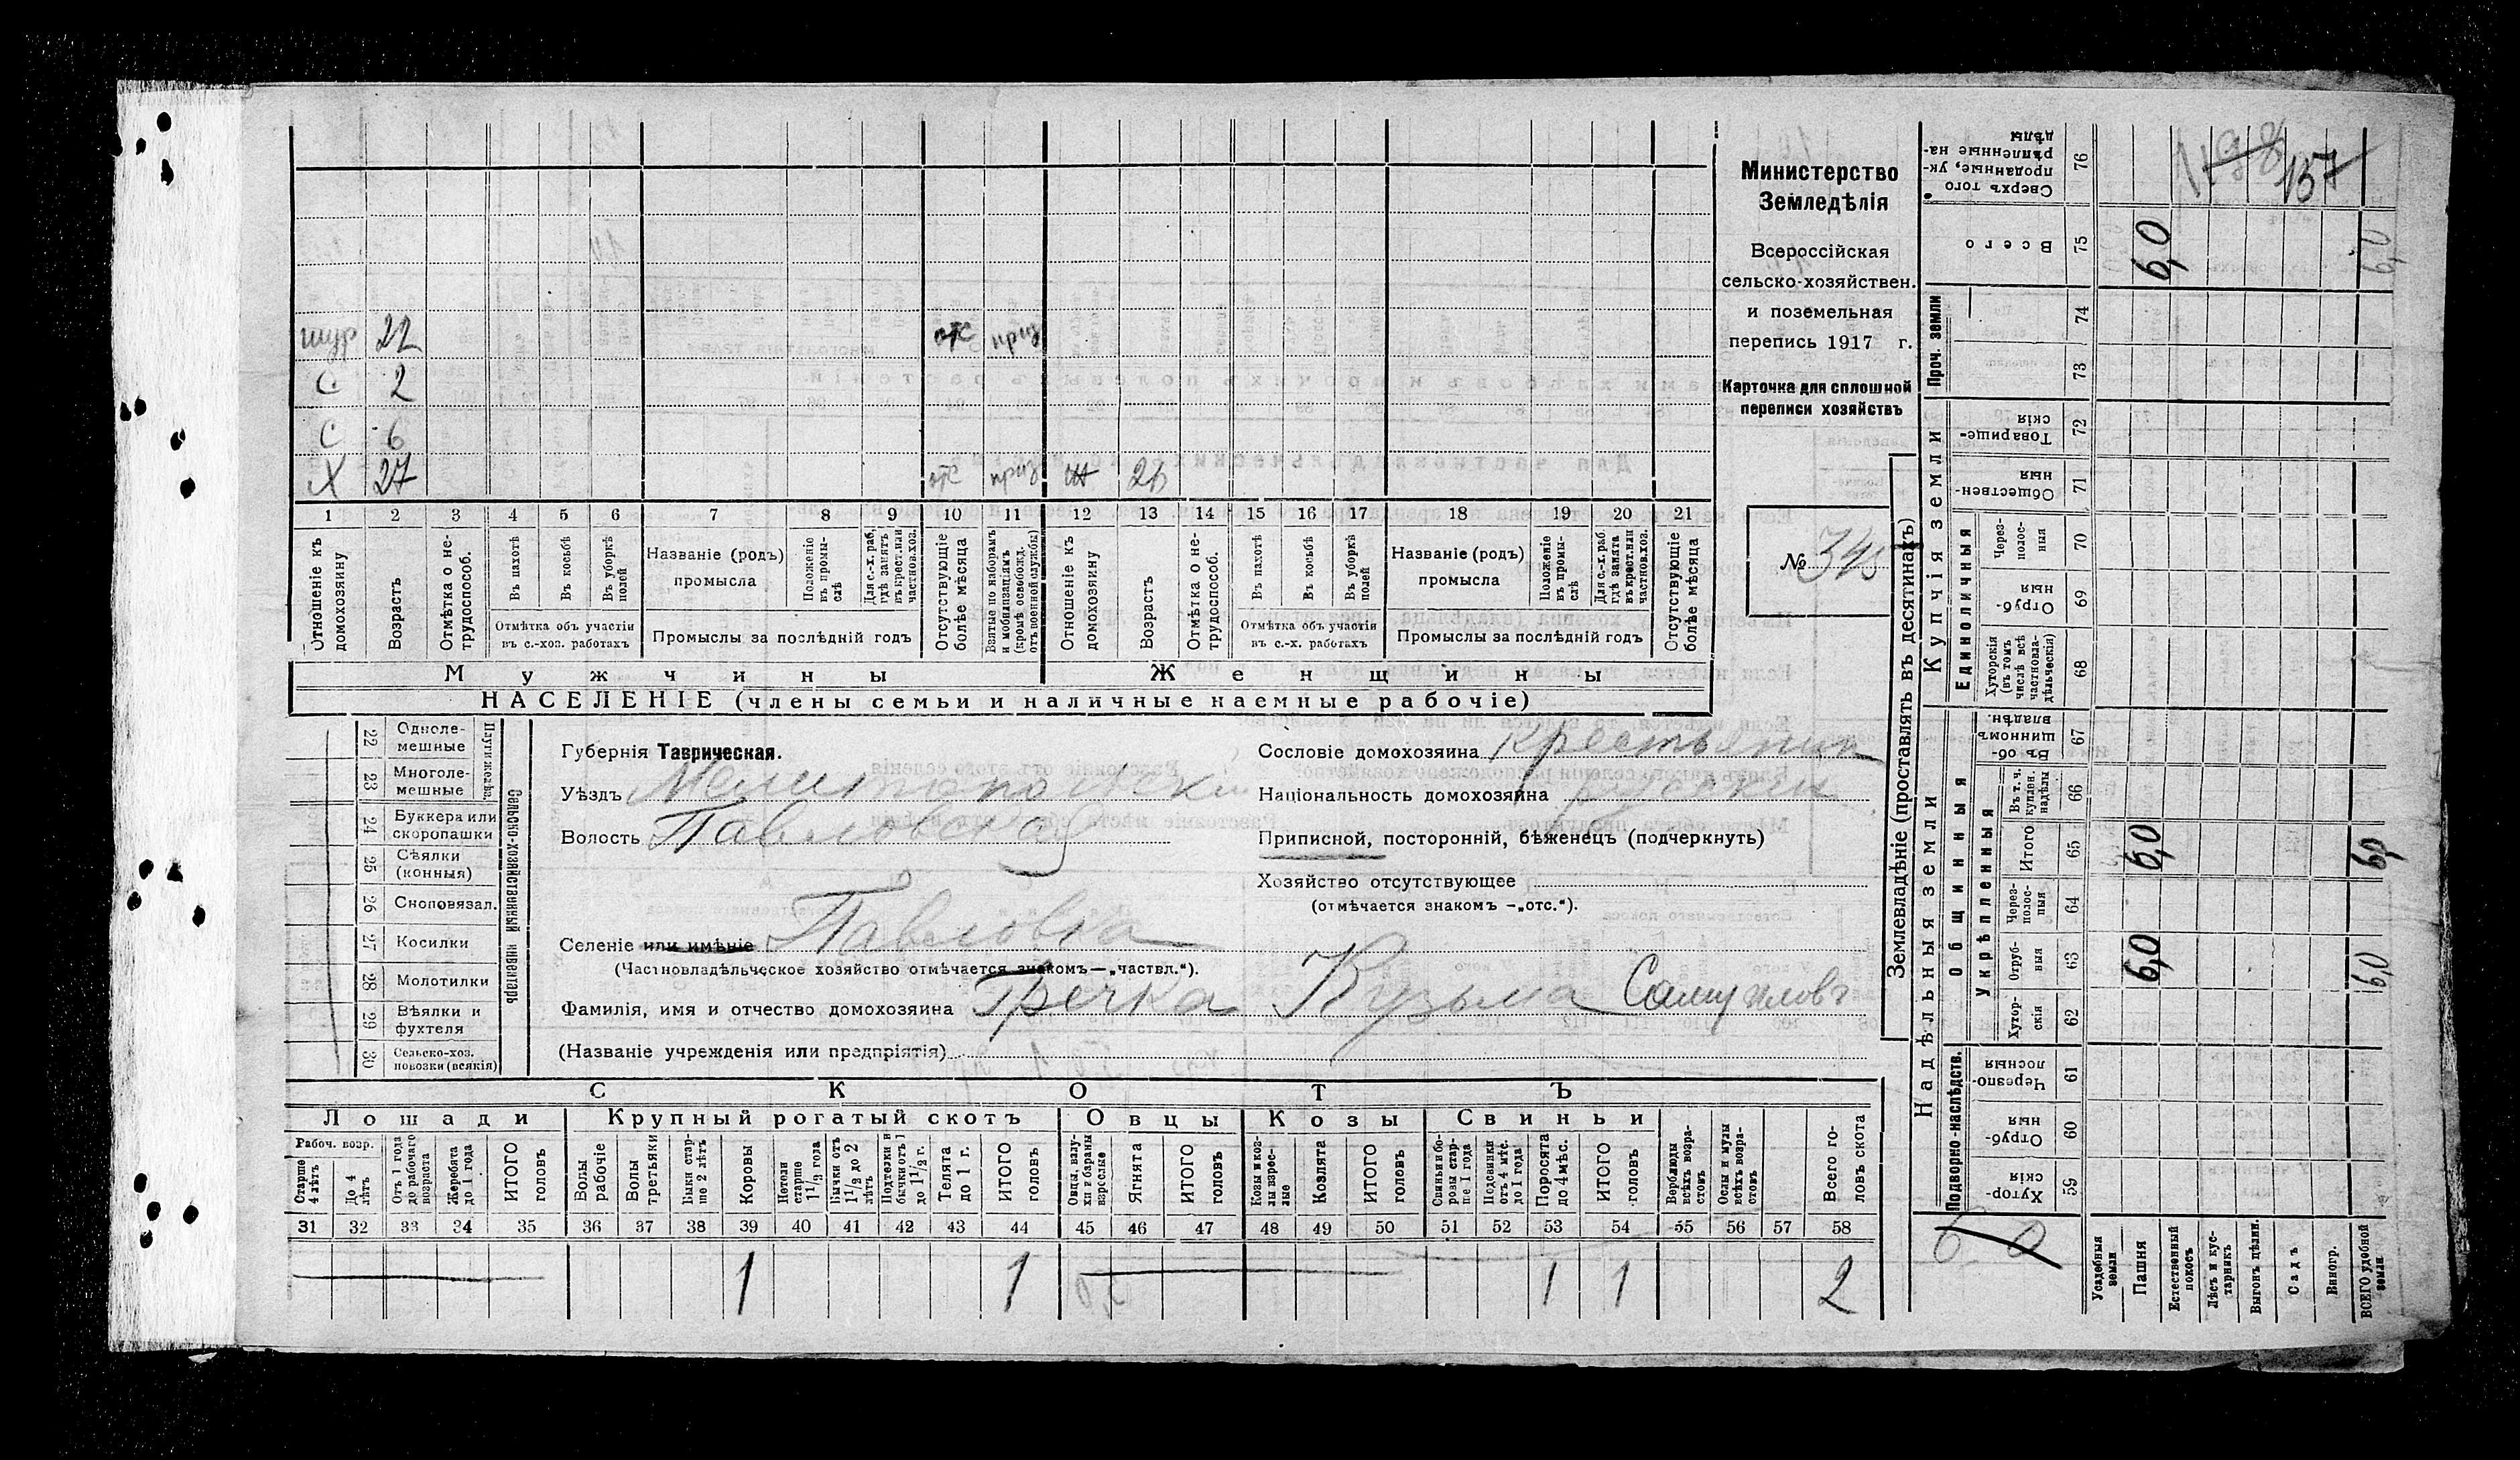 Министерство
Земледѣлія
Всероссійская
сельско-хозяйствен.
и поземельная
перепись 1917 г.
Карточка для сплошной
переписи хозяйствъ
№ 345
шур 22 отс приз
С 2
С 6
Х 27 отс приз ж 26
1 2 3 4 5 6 7 8 9 10 11 12 13 14 15 16 17 18 19 20 21
Отношеніе къ домохозяину
Возрастъ
Отмѣтка о не-трудоспособ.
Въ пахотѣ
Въ косьбѣ
Въ уборкѣ полей
Отмѣтка объ участіи въ с.-хоз. работахъ
Названіе (родъ) промысла
Положеніе въ промы-слѣ
Для с.-х. раб. гдѣ занятъ въ крест. или частнов. хоз.
Промыслы за послѣдній годъ
Отсутствующіе болѣе мѣсяца
Взятые по наборамъ и мобилизаціямъ (кромѣ освобожд. отъ военной службы)
Отношеніе къ домохозяину
Возрастъ
Отмѣтка о не-трудоспособ.
Въ пахотѣ
Въ косьбѣ
Въ уборкѣ полей
Отмѣтка объ участіи въ с.-х. работахъ
Названіе (родъ) промысла
Положеніе въ промы-слѣ
Для с.-х. раб. гдѣ занята въ крест. или частнов. хоз.
Промыслы за послѣдній годъ
Отсутствующіе болѣе мѣсяца
Мужчины Женщины
НАСЕЛЕНІЕ (члены семьи и наличные наемные рабочіе)
22 Одноле-мешные
23 Многоле-мешные
Плуги желѣз.
24 Буккера или скоропашки
25 Сѣялки (конныя)
26 Сноповязал.
27 Косилки
28 Молотилки
29 Вѣялки и фухтеля
30 Сельско-хоз. повозки (всякія)
Сельско-хозяйственный инвентарь
Губернія Таврическая.
Уѣздъ Мелитопольскій
Волость Павловская
Селеніе или имѣніе Павловка
(Частновладѣльческое хозяйство отмѣчается знакомъ—„частвл.“).
Фамилія, имя и отчество домохозяина Гречка Кузьма Самуиловъ
(Названіе учрежденія или предпріятія)
Сословіе домохозяина Крестьянин
Національность домохозяина русский
Приписной, посторонній, бѣженецъ (подчеркнуть)
Хозяйство отсутствующее
(отмѣчается знакомъ —„отс.“).
СКОТЪ
Лошади Крупный рогатый скотъ Овцы Козы Свиньи
Рабоч. возр.
Старше 4 лѣтъ
До 4 лѣтъ
Отъ 1 года до рабочаго возраста
Жеребята до 1 года
ИТОГО головъ
Волы рабочіе
Волы третьяки
Быки стар-ше 2 лѣтъ
Коровы
Нетели старше 1 1/2 года
Бычки отъ 1 1/2 до 2 лѣтъ
Подтелки и бычки отъ 1 до 1 1/2 г.
Телята до 1 г.
ИТОГО головъ
Овцы, валу-хи и бараны взрослые
Ягнята
ИТОГО головъ
Козы и коз-лы взрос-лые
Козлята
ИТОГО головъ
Свиньи и бо-ровы стар-ше 1 года
Подсвинки отъ 4 мѣс. до 1 года
Поросята до 4 мѣс.
ИТОГО головъ
Верблюды всѣхъ возра-стовъ
Ослы и мулы всѣхъ возра-стовъ
Всего го-ловъ скота
31 32 33 34 35 36 37 38 39 40 41 42 43 44 45 46 47 48 49 50 51 52 53 54 55 56 57 58
1 1 1 1 2
Землевладѣніе (проставлять въ десятинахъ)
Надѣльныя земли
Купчія земли
Проч. земли
Подворно-наслѣдств.
Общинныя
Укрѣпленныя
Единоличныя
59 Хутор-скія
60 Отруб-ныя
61 Черезпо-лосныя
62 Хутор-скія
63 Отруб-ныя 6,0 6,0
64 Через-полос-ныя
65 Итого 6,0 6,0
66 Въ т. ч. куплен. надѣлы
67 Въ об-щинномъ владѣн.
68 Хуторскія (въ томъ числѣ всѣ частновла-дѣльческія)
69 Отруб-ныя
70 Через-полос-ныя
71 Обществен-ныя
72 Товарище-скія
73
74
75 Всего 6,0 6,0
76 Сверхъ того проданные, ук-рѣпленные на-дѣлы
1198 157
6,0
Усадебныя земли
Пашня
Естественный покосъ
Лѣсъ и кус-тарникъ
Выгонъ цѣлин.
Садъ
Виногр.
ВСЕГО удобной земли